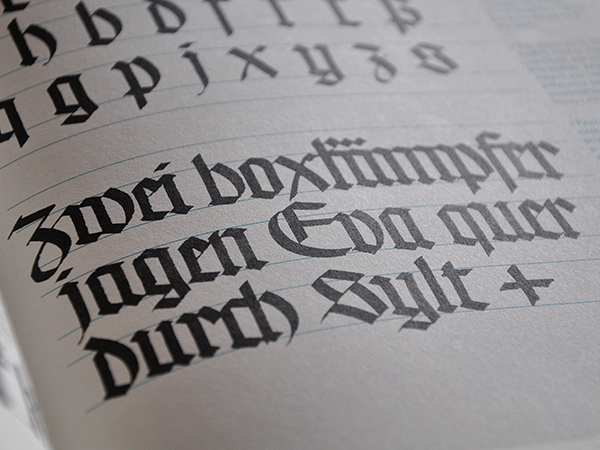 h b d f r t l ß
q g p j x y z s
Zwei boxkämpfer
jagen Eva quer
durch Sylt +